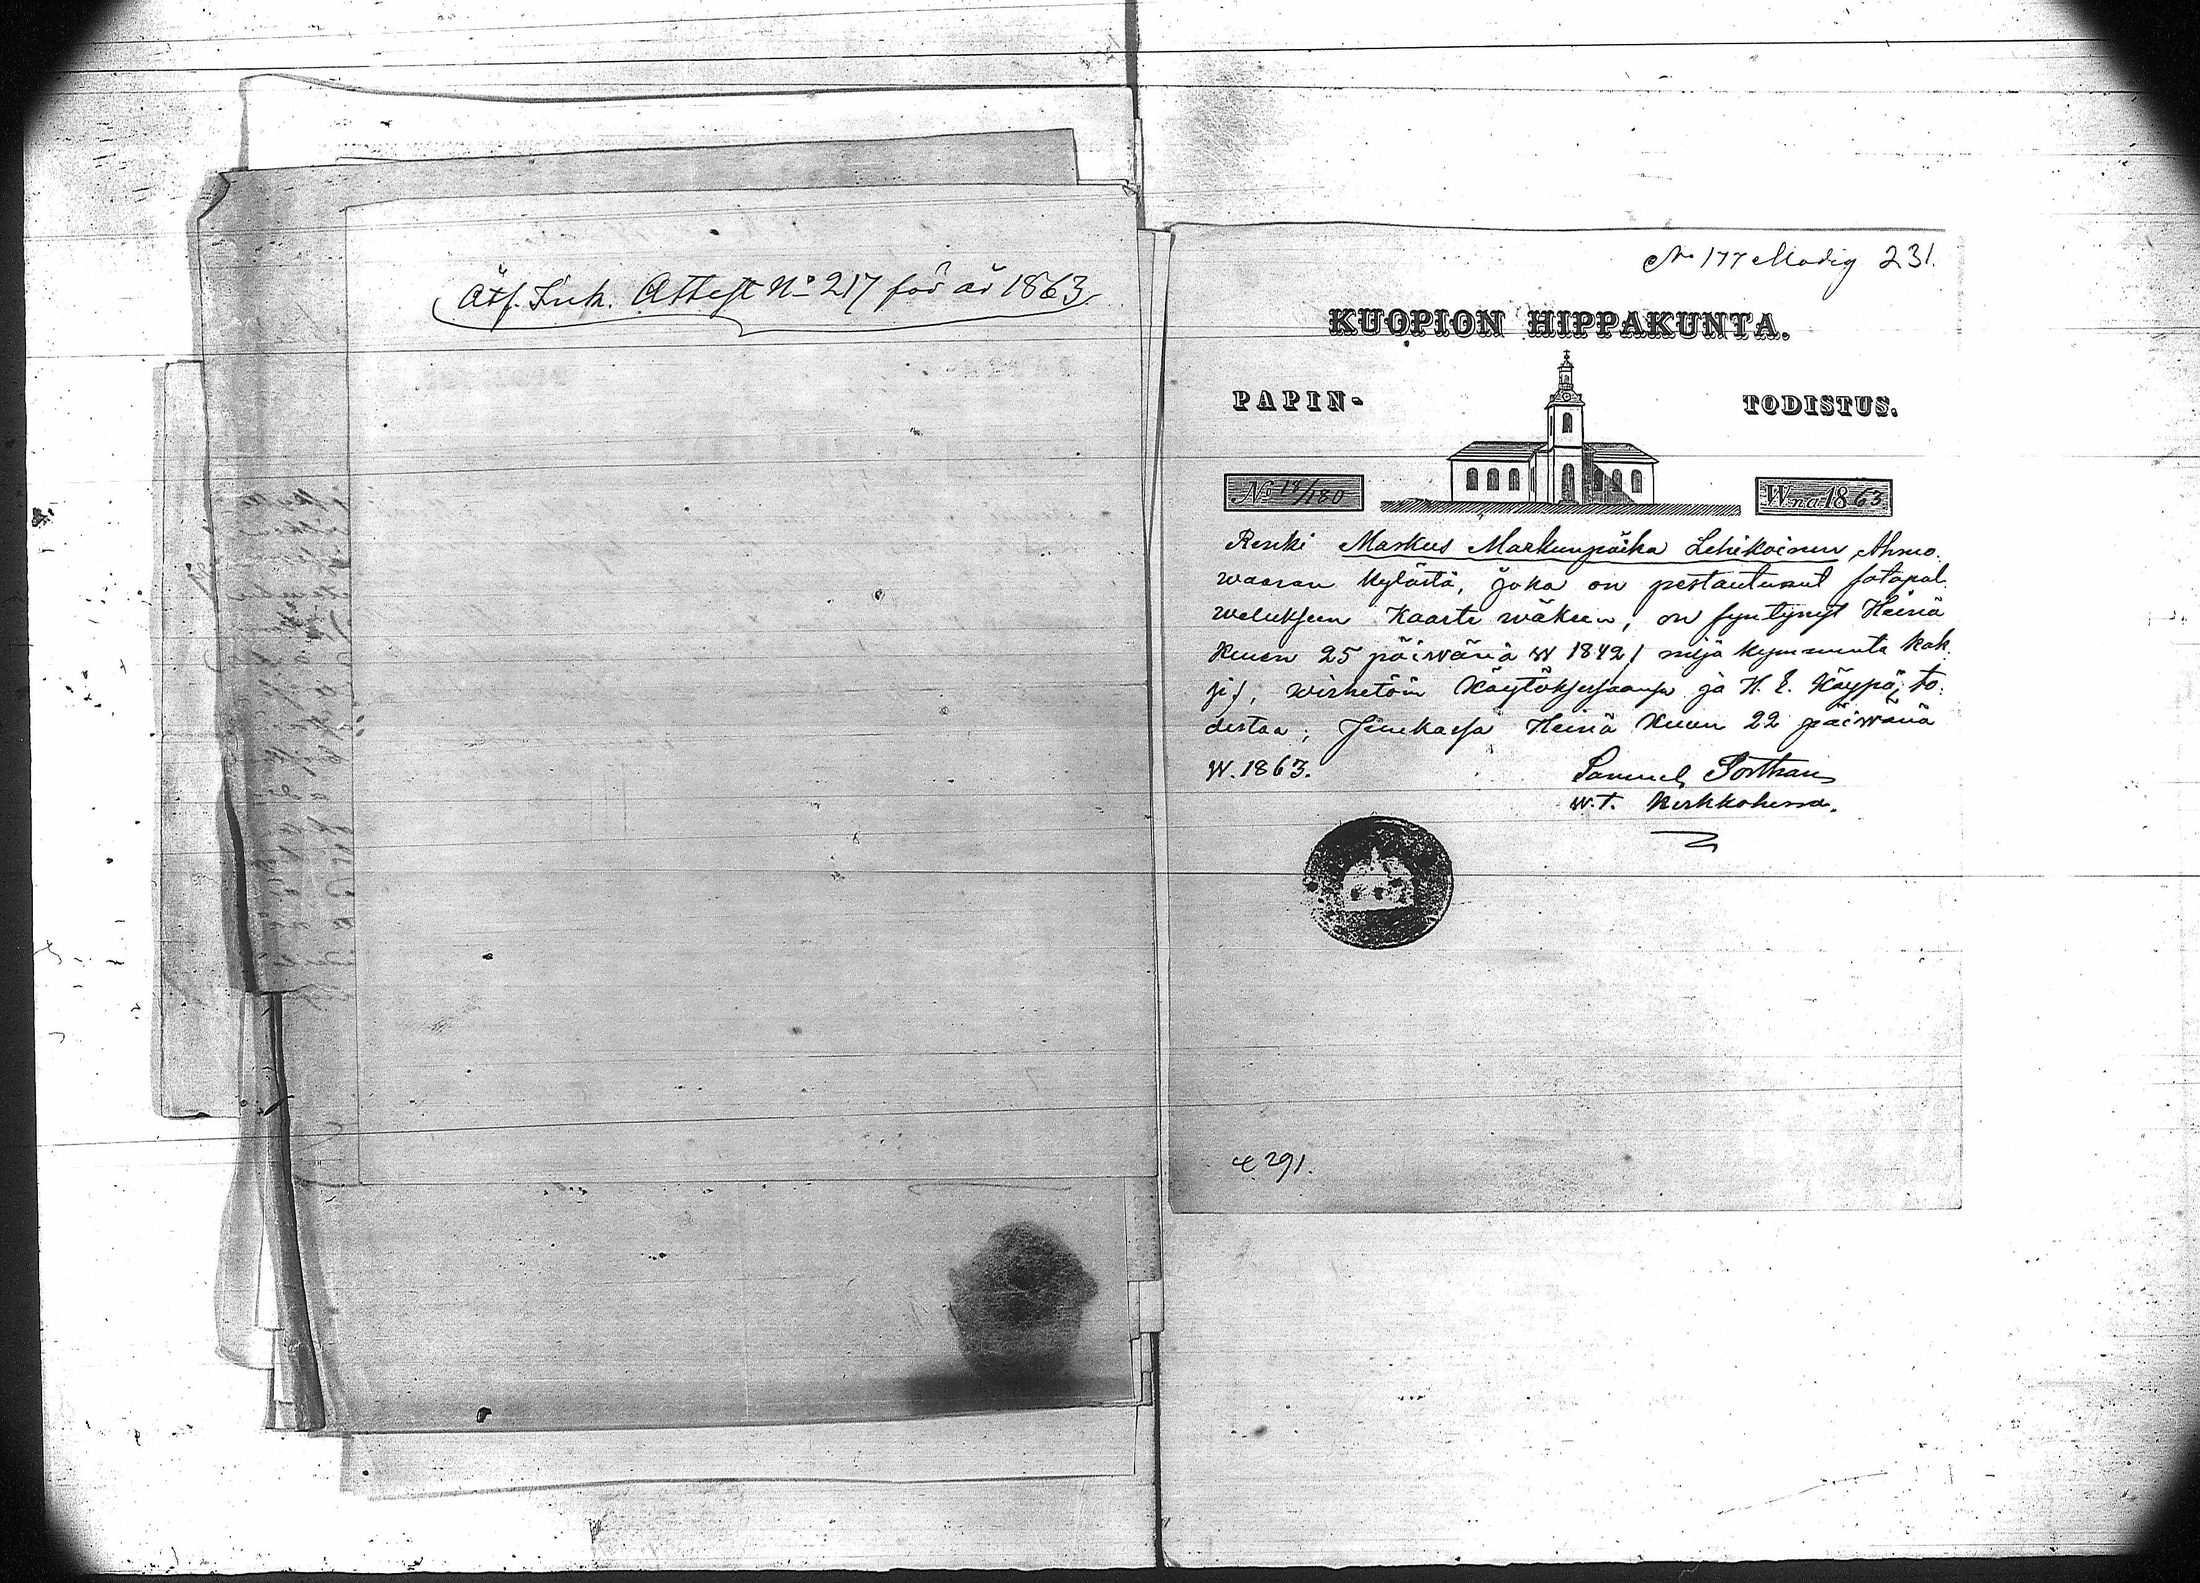 Attest No 217 för år 1863
No 177 Modig 231.
KUOPION HIPPAKUNTA.
PAPIN- TODISTUS.
No 18/180 Wna 1863
Renki Markus Markunpoika Lehikoinen Ahmo-
waaran kylästä, joka on pestautunut sotapal-
welukseen Kaarti wäkeen, on syntynyt Heinä
kuun 25 päiwänä w 1842 / neljä kymmentä kak-
si /, wirhetöin käytöksessänsä ja H. E. Käypä; to-
distaa; Heinä kuun 22 päiwänä
W. 1863.
Samuel Porthan
w.t. Kirkkoherra.
291.